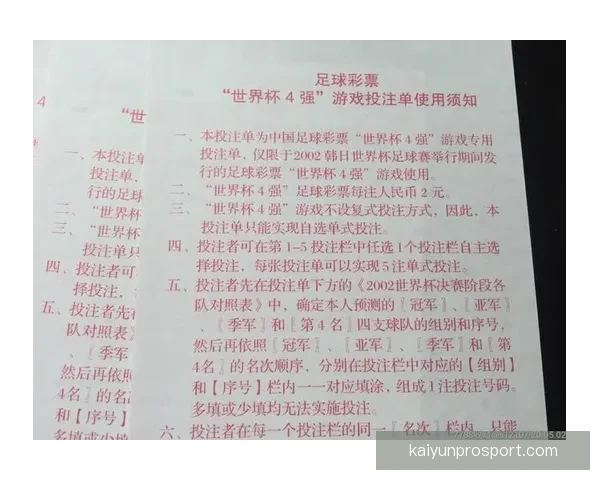 足球彩票
“世界杯 4 强”游戏投注单使用须知
一、本投注单为中国足球彩票“世界杯 4 强”游戏专用
投注单，仅限于2002 韩日世界杯足球赛举行期间发
行的足球彩票“世界杯 4 强”游戏使用。
二、“世界杯 4 强”足球彩票每注人民币 2 元。
三、“世界杯 4 强”游戏不设复式投注方式，因此，本
投注单只能实现自选单式投注。
四、投注者可在第 1–5 投注栏中任选 1个投注栏自主选
择投注，每张投注单可以实现 5 注单式投注。
五、投注者先在投注单下方的《2002世界杯决赛阶段各
队对照表》中，确定本人预测的〖冠军〗、〖亚军〗
、〖季军〗和〖第 4 名〗四支球队的组别和序号，
然后再依照〖冠军〗、〖亚军〗、〖季军〗和〖第
4名〗的名次顺序，分别在投注栏中对应的【组别】
和【序号】栏内一一对应填涂，组成 1 注投注号码。
多填或少填均无法实施投注。
六、投注者在每一个投注栏的同一〖名次〗栏内，只能
4
“世
一、本投注单
投注单，
行的足球
二、“世界杯
三、“世界杯
投注单只
四、投注者可
择投注，
五、投注者先在
队对照表》
、〖季军〗
然后再依照
4名〗的名
和【序号】
多填或少填
kaiyunprosport.com